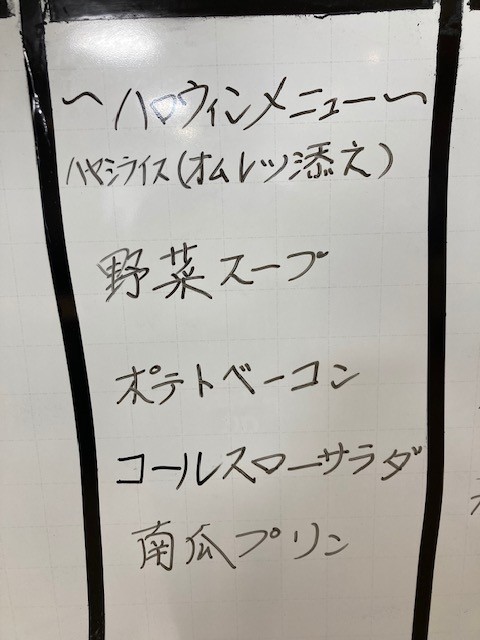 ～ハロウィンメニュー～
ハヤシライス(オムレツ添え)
野菜スープ
ポテトベーコン
コールスローサラダ
南瓜プリン